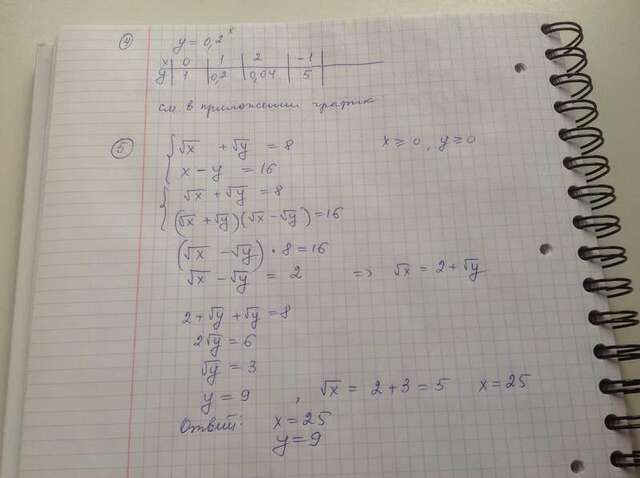 4) y = 0,2^x
x | 0 | 1 | 2 | -1 |
y | 1 | 0,2 | 0,04 | 5 |
см. в приложении график
5) { √x + √y = 8    x ≥ 0, y ≥ 0
x - y = 16
{ √x + √y = 8
(√x + √y)(√x - √y) = 16
(√x - √y) · 8 = 16
√x - √y = 2 => √x = 2 + √y
2 + √y + √y = 8
2√y = 6
√y = 3
y = 9 , √x = 2 + 3 = 5 x = 25
Ответ: x = 25
y = 9